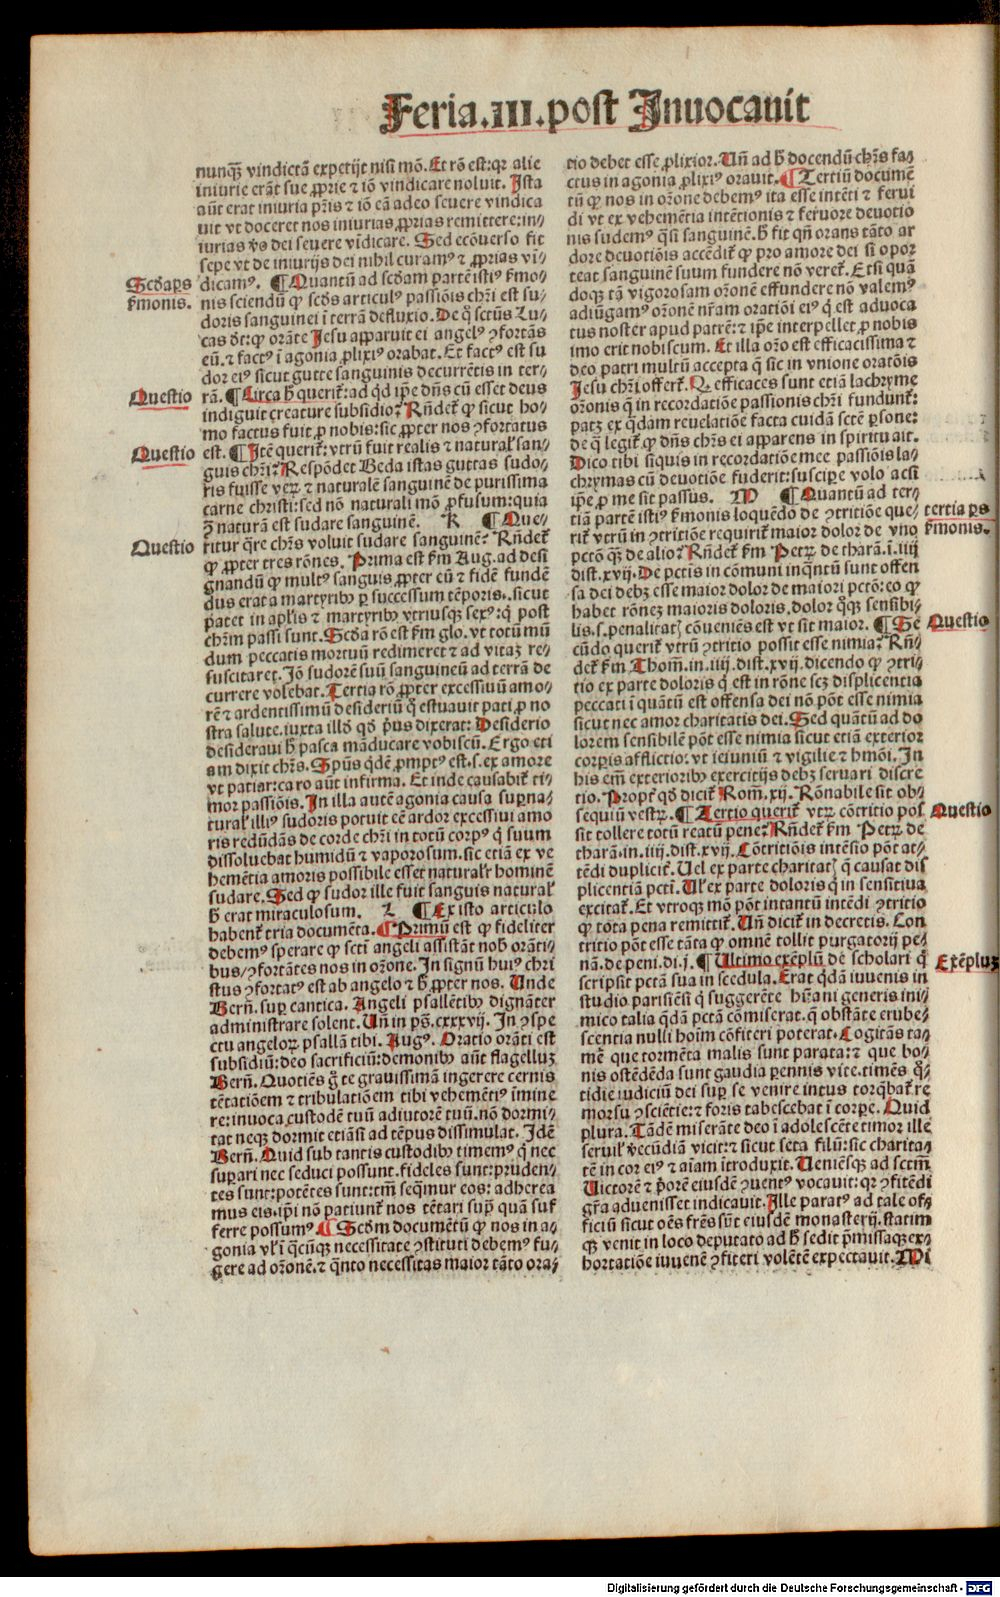 Feria.III.post Inuocauit
nunqȝ vindictā expetijt nisi mō. Et rō est: qr alie
iniurie erāt sue ꝓprie ⁊ iō vindicare noluit. Ista
aūt erat iniuria pr̄is ⁊ iō eā adeo seuere vindica
uit vt doceret nos iniurias ꝓprias remittere: in/
iurias v̄o dei seuere vīdicare. Sed ecōuerso fit
sepe vt de iniurijs dei nihil curamꝰ ⁊ ꝓprias vī/
Scd̄a ps
dicamꝰ. ¶ Quantū ad scd̄am partē istiꝰ ẜmo/
ẜmonis.
nis sciendū ꝙ scd̄s articulꝰ passiōis chr̄i est su/
doris sanguinei ī terrā defluxio. De q̄ sctūs Lu/
cas dt̄: ꝙ orāte Iesu apparuit ei angelꝰ ꝯfortās
eū. ⁊ factꝰ ī agonia ꝓlixiꝰ orabat. Et factꝰ est su
dor eiꝰ sicut gutte sanguinis decurrētis in ter/
Questio
rā. ¶ Circa h̄ querit᷑: ad qd̄ ip̄e dn̄s cū esset deus
indiguit creature subsidio? Rn̄det᷑ ꝙ sicut ho/
mo factus fuit ꝓ nobis: sic ꝓpter nos ꝯfortatus
Questio
est. ¶ Itē querit᷑: vtrū fuit realis ⁊ natural᷑ san/
guis chr̄i? Respōdet Beda istas guttas sudo/
ris fuisse veꝝ ⁊ naturalē sanguinē de purissima
carne christi: sed nō naturali mō ꝓfusum: quia
ꝫ naturā est sudare sanguinē. K ¶ Que/
Questio
ritur q̄re chr̄s voluit sudare sanguinē? Rn̄det᷑
ꝙ ꝓpter tres rōnes. Prima est ẜm Aug. ad desi
gnandū ꝙ multꝰ sanguis ꝓpter eū ⁊ fidē fundē
dus erat a martyribꝰ ꝑ successum tēporis. sicut
patet in apl̄is ⁊ martyribꝰ vtriusqȝ sexꝰ: q̄ post
chr̄m passi sunt. Scd̄a rō est ẜm glo. vt totū mū
dum peccatis mortuū redimeret ⁊ ad vitaȝ re/
suscitaret. Iō sudorē suū sanguineū ad terrā de
currere volebat. Tertia rō ꝓpter excessiuū amo/
rē ⁊ ardentissimū desideriū q̄ estuauit pati ꝓ no
stra salute. iuxta illd̄ qd̄ p̄us dixerat: Desiderio
desideraui h̄ pasca māducare vobiscū. Ergo eti
am dixit chr̄s. Spūs qd̄ē ꝓmptꝰ est. s. ex amore
vt patiar: caro aūt infirma. Et inde causabit᷑ ti/
mor passiōis. In illa autē agonia causa suꝑna/
tural᷑ illiꝰ sudoris potuit eē ardor excessiui amo
ris redūdās de corde chr̄i in totū corpꝰ q̄ suum
dissoluebat humidū ⁊ vaporosum. sic etiā ex ve
hemētia amoris possibile esset natural᷑r hominē
sudare. Sed ꝙ sudor ille fuit sanguis natural᷑
h̄ erat miraculosum. L ¶ Ex isto articulo
habent᷑ tria documēta. ¶ Primū est ꝙ fideliter
debemꝰ sperare ꝙ sctī angeli assistāt nob̄ orāti/
bus/ ꝯfortātes nos in or̄one. In signū huiꝰ chri
stus ꝯfortatꝰ est ab angelo ⁊ h̄ ꝓpter nos. Unde
Bern̄. suꝑ cantica. Angeli psallētibꝰ dignāter
administrare solent. Un̄ in pṡ. cxxxvij. In ꝯspe
ctu angeloꝝ psallā tibi. Augꝰ. Oratio orāti est
subsidiū: deo sacrificiū: demonibꝰ aūt flagelluȝ
Bern̄. Quotiēs g̊ te grauissimā ingerere cernis
tētatiōem ⁊ tribulatiōem tibi vehemētiꝰ īmine
re: inuoca custodē tuū adiutorē tuū. nō dormi/
tat neqȝ dormit etiāsi ad tēpus dissimulat. Idē
Bern̄. Quid sub tantis custodibꝰ timemꝰ q̄ nec
suꝑari nec seduci possunt. fideles sunt: pruden/
tes sunt: potētes sunt: tm̄ seq̄mur eos: adherea
mus eis. ip̄i nō patiunt᷑ nos tētari supͣ quā suf
ferre possumꝰ. ¶ Scd̄m documētū ꝙ nos in a/
gonia vl᷑ ī q̄cūqȝ necessitate ꝯstituti debemꝰ fu/
gere ad or̄onē. ⁊ q̄nto necessitas maior tāto ora/
tio debet esse ꝓlixior. Un̄ ad h̄ docendū chr̄s fa/
ctus in agonia ꝓlixiꝰ orauit. ¶ Tertiū documē
tū ꝙ nos in or̄one debemꝰ ita esse intēti ⁊ ferui
di vt ex vehemētia intētionis ⁊ feruore deuotio
nis sudemꝰ q̄si sanguinē. h̄ fit qn̄ orans tāto ar
dore deuotiōis accēdit᷑ ꝙ pro amore dei si opor
teat sanguinē suum fundere nō veret᷑. Etsi quā
doqȝ tā vigorosam or̄onē effundere nō valemꝰ
adiūgamꝰ or̄onē nr̄am oratiōi eiꝰ q̄ est aduoca
tus noster apud patrē: ⁊ ip̄e interpellet ꝓ nobis
imo erit nobiscum. Et illa or̄o est efficacissima ⁊
deo patri multū accepta q̄ sic in vnione oratōis
Iesu chr̄i offert᷑. Qꝫ efficaces sunt etiā lachryme
or̄onis q̄ in recordatiōe passionis chr̄i fundunt᷑:
patȝ ex q̄dam reuelatiōe facta cuidā sctē ꝑsone:
de q̄ legit᷑ ꝙ dn̄s chr̄s ei apparens in spiritu ait.
Dico tibi siquis in recordatiōe mee passiōis la/
chrymas cū deuotiōe fuderit: suscipe volo acsi
ip̄e ꝓ me sit passus. M ¶ Quantū ad ter/
tertia ps
tiā partē istiꝰ ẜmonis loquēdo de ꝯtritiōe que/
ẜmonis.
rit᷑ vtrū in ꝯtritiōe requirit᷑ maior dolor de vno
pctō qȝ de alio? Rn̄det᷑ ẜm Petꝝ de tharā. ī. iiij
dist. xvij. De pctīs in cōmuni inq̄ntū sunt offen
sa dei debȝ esse maior dolor de maiori pctō: eo ꝙ
habet rōneȝ maioris doloris. dolor qͦqȝ sensibi/
Questio
lis. s. penalitatȝ cōueniēs est vt sit maior. ¶ Se
cūdo querit᷑ vtrū ꝯtritio possit esse nimia? Rn̄/
det᷑ ẜm Thom̄. in. iiij. dist. xvij. dicendo ꝙ ꝯtri/
tio ex parte doloris q̄ est in rōne scȝ displicentia
peccati ī quātū est offensa dei nō pōt esse nimia
sicut nec amor charitatis dei. Sed quātū ad do
lorem sensibilē pōt esse nimia sicut etiā exterior
corꝑis afflictio: vt ieiuniū ⁊ vigilie ⁊ hmōi. In
his em̄ exterioribꝰ exercitijs debȝ seruari discre
tio. Propt᷑ qd̄ dicit᷑ Rom̄. xij. Rōnabile sit ob/
Questio
sequiū vestꝝ. ¶ Tertio querit᷑ vtꝝ cōtritio pos
sit tollere totū reatū pene? Rn̄det᷑ ẜm Petꝝ de
tharā. in. iiij. dist. xvij. Cōtritiōis intēsio pōt at/
tēdi duplicit᷑. Uel ex parte charitatȝ q̄ causat dis
plicentiā pctī. Ul᷑ ex parte doloris q̄ in sensitiua
excitat᷑. Et vtroqȝ mō pōt intantū intēdi ꝯtritio
ꝙ tota pena remittit᷑. Un̄ dicit᷑ in decretis. Con
tritio pōt esse tāta ꝙ omnē tollit purgatorij pe/
Exēpluȝ
nā. de peni. di. j. ¶ Ultimo exēplū de scholari q̄
scripsit pctā sua in scedula. Erat qd̄ā iuuenis in
studio parisiēsi q̄ suggerēte hūani generis ini/
mico talia qd̄ā pctā cōmiserat. q̄ obstāte erube/
scentia nulli hoīm cōfiteri poterat. Cogitās ta/
mē que tormēta malis sunt parata: ⁊ que bo/
nis ostēdēda sunt gaudia ꝑennis vite. timēs q̄/
tidie iudiciū dei suꝑ se venire intus torq̄bat᷑ re
morsu ꝯsciētie: ⁊ foris tabescebat ī corꝑe. Quid
plura. Tādē miserāte deo ī adolescēte timor ille
seruil᷑ v̄ecūdiā vicit: ⁊ sicut seta filū: sic charita/
tē in cor eiꝰ ⁊ aīam ītroduxit. Ueniēsqȝ ad sctm̄
Uictorē ⁊ p̄orē eiusdē ꝯuentꝰ vocauit: qr ꝯfitēdi
gr̄a aduenisset indicauit. Ille paratꝰ ad tale of/
ficiū sicut oēs fr̄es sūt eiusdē monasterij. statim
qȝ venit in loco deputato ad h̄ sedit p̄missaqȝ ex/
hortatiōe iuuenē ꝯfiteri volētē expectauit. Mi
Digitalisierung gefördert durch die Deutsche Forschungsgemeinschaft - DFG